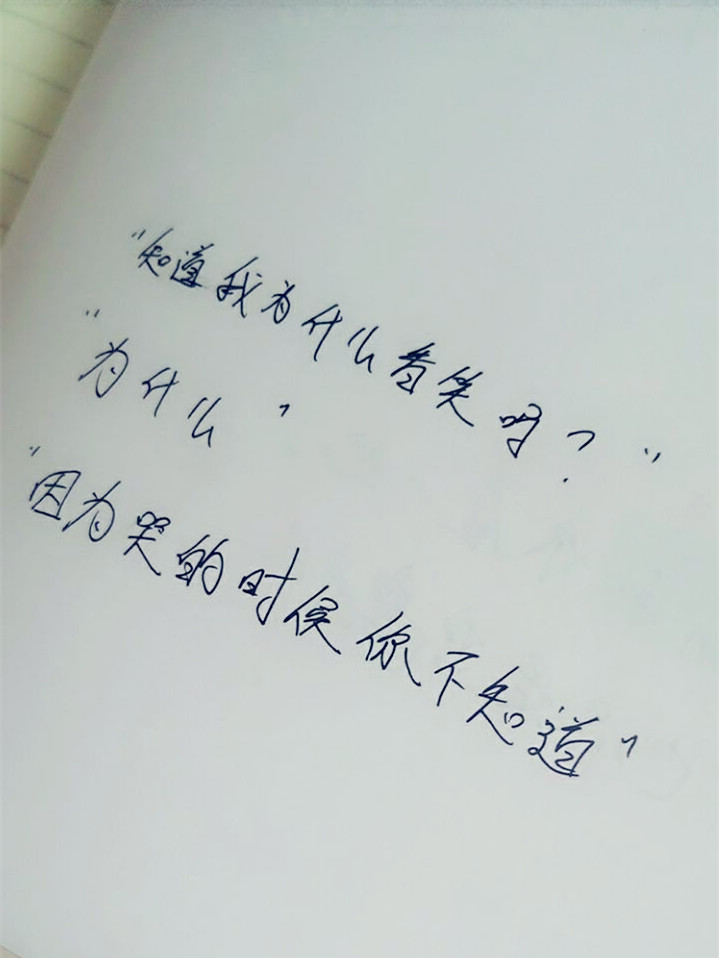 "知道我为什么笑吗？"
"为什么"
"因为哭的时候你不知道"